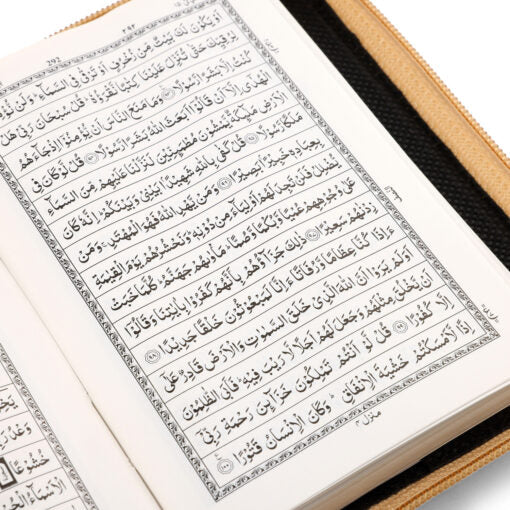 292
اَوْ يَكُوْنَ لَكَ بَيْتٌ مِّنْ زُخْرُفٍ اَوْ تَرْقٰى فِى السَّمَآءِ ؕ وَلَنْ نُّؤْمِنَ
لِرُقِيِّكَ حَتّٰى تُنَزِّلَ عَلَيْنَا كِتٰبًا نَّقْرَؤُهٗ ؕ قُلْ سُبْحَانَ رَبِّىْ هَلْ
كُنْتُ اِلَّا بَشَرًا رَّسُوْلًا ﴿٩٣﴾ وَمَا مَنَعَ النَّاسَ اَنْ يُّؤْمِنُوْۤا اِذْ جَآءَهُمُ
الْهُدٰۤى اِلَّاۤ اَنْ قَالُوْۤا اَبَعَثَ اللّٰهُ بَشَرًا رَّسُوْلًا ﴿٩٤﴾ قُلْ لَّوْ كَانَ فِى
الْاَرْضِ مَلٰٓئِكَةٌ يَّمْشُوْنَ مُطْمَئِنِّيْنَ لَنَزَّلْنَا عَلَيْهِمْ مِّنَ السَّمَآءِ
مَلَكًا رَّسُوْلًا ﴿٩٥﴾ قُلْ كَفٰى بِاللّٰهِ شَهِيْدًۢا بَيْنِىْ وَبَيْنَكُمْ ؕ اِنَّهٗ كَانَ
بِعِبَادِهٖ خَبِيْرًۢا بَصِيْرًا ﴿٩٦﴾ وَمَنْ يَّهْدِ اللّٰهُ فَهُوَ الْمُهْتَدِ ۚ وَمَنْ
يُّضْلِلْ فَلَنْ تَجِدَ لَهُمْ اَوْلِيَآءَ مِنْ دُوْنِهٖ ؕ وَنَحْشُرُهُمْ يَوْمَ الْقِيٰمَةِ
عَلٰى وُجُوْهِهِمْ عُمْيًا وَّبُكْمًا وَّصُمًّا ؕ مَاْوٰىهُمْ جَهَنَّمُ ؕ كُلَّمَا خَبَتْ
زِدْنٰهُمْ سَعِيْرًا ﴿٩٧﴾ ذٰلِكَ جَزَآؤُهُمْ بِاَنَّهُمْ كَفَرُوْا بِاٰيٰتِنَا وَقَالُوْۤا
ءَاِذَا كُنَّا عِظَامًا وَّرُفَاتًا ءَاِنَّا لَمَبْعُوْثُوْنَ خَلْقًا جَدِيْدًا ﴿٩٨﴾
اَوَلَمْ يَرَوْا اَنَّ اللّٰهَ الَّذِىْ خَلَقَ السَّمٰوٰتِ وَالْاَرْضَ قَادِرٌ عَلٰۤى
اَنْ يَّخْلُقَ مِثْلَهُمْ وَجَعَلَ لَهُمْ اَجَلًا لَّا رَيْبَ فِيْهِ ؕ فَاَبَى الظّٰلِمُوْنَ
اِلَّا كُفُوْرًا ﴿٩٩﴾ قُلْ لَّوْ اَنْتُمْ تَمْلِكُوْنَ خَزَآئِنَ رَحْمَةِ رَبِّىْۤ
اِذًا لَّاَمْسَكْتُمْ خَشْيَةَ الْاِنْفَاقِ ؕ وَكَانَ الْاِنْسَانُ قَتُوْرًا ﴿١٠٠﴾
منزل ٤